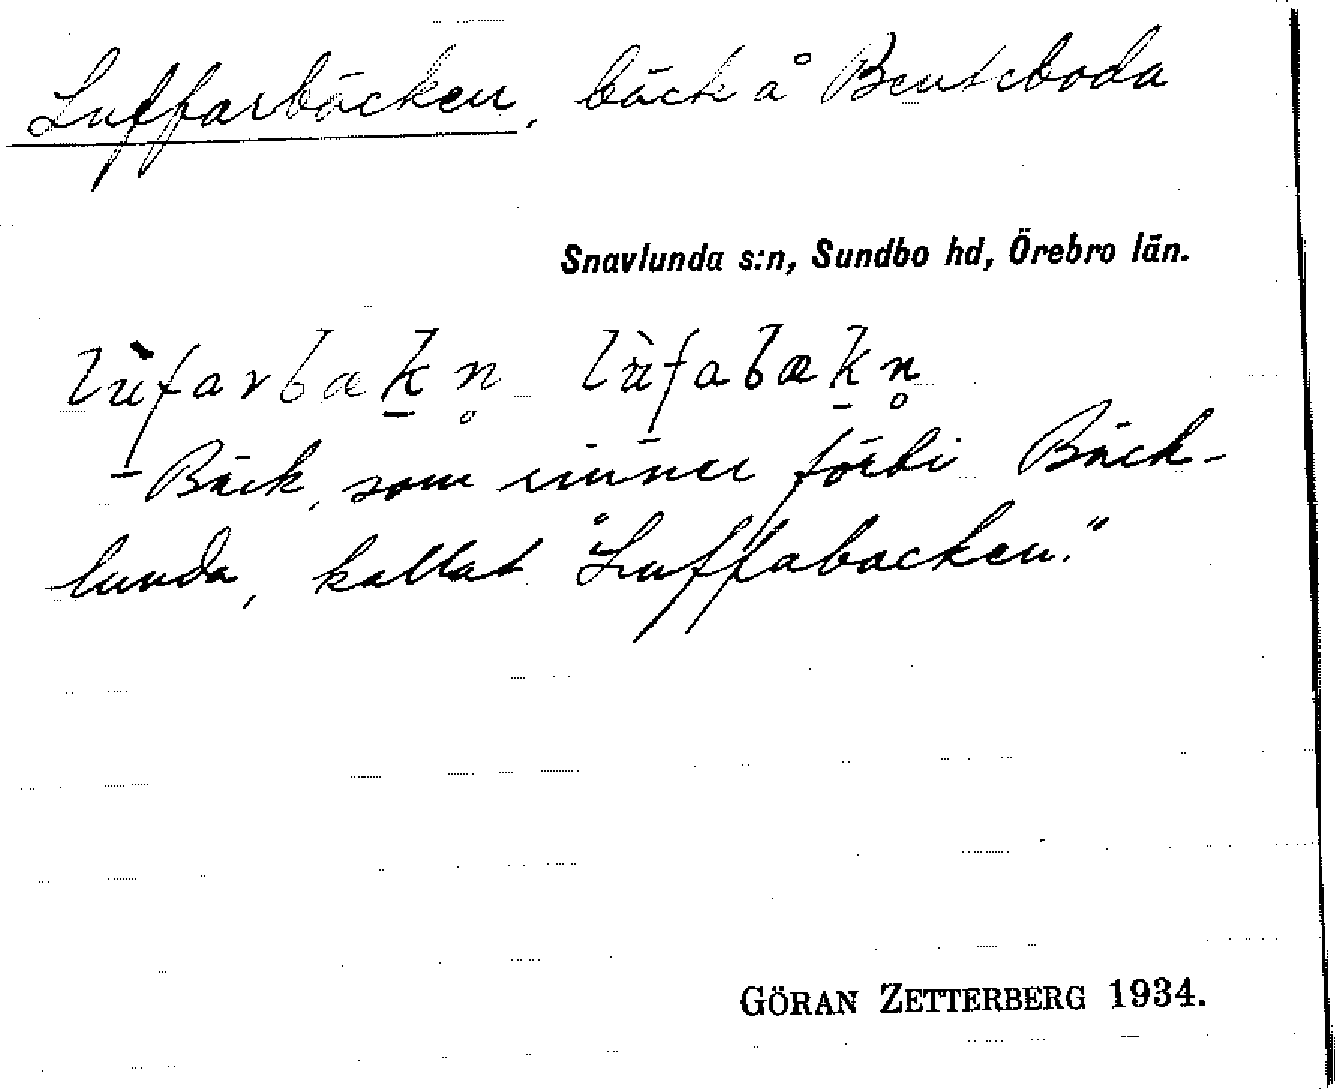 Luffarbäcken, bäck å Benteboda
Snavlunda s:n, Sundbo hd, Örebro län.
lùfarbækn̥ lùfabækn̥
Bäck, som rinner förbi Bäck-
lunda, kallat "Luffabacken."
GÖRAN ZETTERBERG 1934.